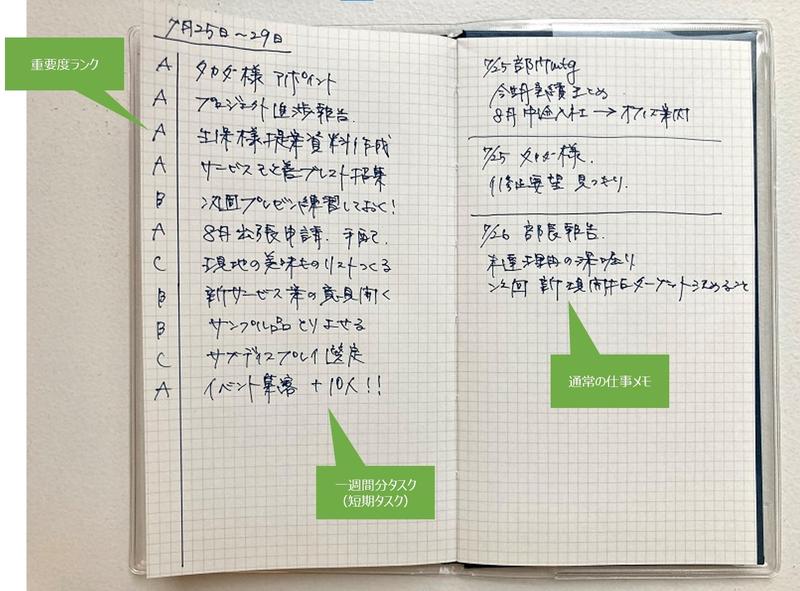 7月25日〜29日
重要度ランク
A タカダ様 アポイント
A プロジェクト進捗報告.
A 生保様提案資料作成
A サービス改善ブレスト招集
B 次回プレゼン練習しておく!
A 8月出張申請. 手配.
C 現地の美味ものリストつくる
B 新サービス案の意見聞く
B サンプル品とりよせる
C サブディスプレイ選定
A イベント集客 +10人!!
一週間分タスク
(短期タスク)
7/25 部門mtg
今期実績まとめ
8月 中途入社→オフィス案内
7/25 タカダ様.
修正要望 見つもり.
7/26 部長報告.
未達理由の深堀り
次回 新規開拓ターゲット決めること
通常の仕事メモ